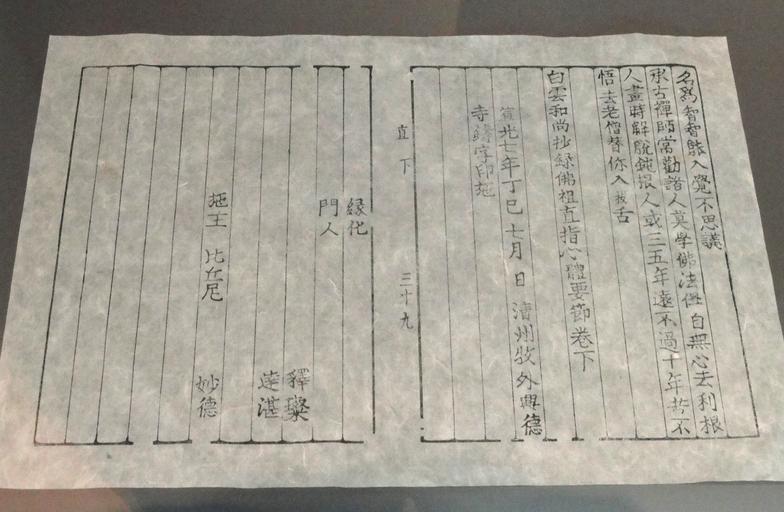 名爲智智能入覺不思議
承古禪師常勸諸人莫學佛法但自無心去利根
人畫時解脫鈍根人或三五年遠不過十年若不
悟去老僧替你入拔舌
白雲和尚抄錄佛祖直指心體要節卷下
宣光七年丁巳七月 日 清州牧外興德
寺鑄字印施
直下 三十九
緣化
門人
釋璨
達湛
施主 比丘尼 妙德